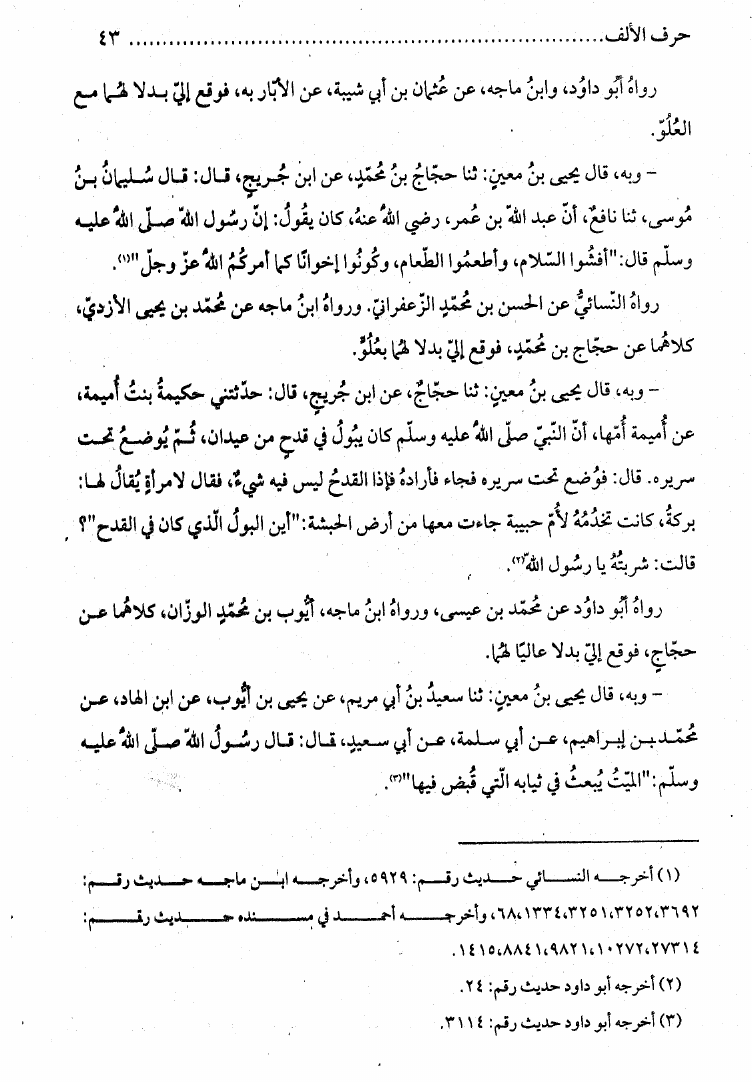 حرف الألف ........................................................................ ٤٣
رواهُ أبُو داوُد، وابنُ ماجه، عن عُثمان بن أبي شيبة، عن الأبّار به، فوقع إليّ بدلا لهُما مع
العُلُوّ.
– وبه، قال يحيى بنُ معينٍ: ثنا حجّاجُ بنُ مُحمّدٍ، عن ابن جُريجٍ، قال: قال سُليمانُ بنُ
مُوسى، ثنا نافعٌ، أنّ عبد الله بن عُمر، رضي اللهُ عنهُ، كان يقُولُ: إنّ رسُول الله صلّى اللهُ عليه
وسلّم قال:"أفشُوا السّلام، وأطعمُوا الطّعام، وكُونُوا إخوانًا كما أمركُمُ اللهُ عزّ وجلّ"(١).
رواهُ النّسائيُّ عن الحسن بن مُحمّدٍ الزّعفرانيّ. ورواهُ ابنُ ماجه عن مُحمّد بن يحيى الأزديّ،
كلاهُما عن حجّاج بن مُحمّدٍ، فوقع إليّ بدلا لهُما بعُلُوٍّ.
– وبه، قال يحيى بنُ معينٍ: ثنا حجّاجٌ، عن ابن جُريجٍ، قال: حدّثتني حكيمةُ بنتُ أُميمة،
عن أُميمة أُمّها، أنّ النّبيّ صلّى اللهُ عليه وسلّم كان يبُولُ في قدحٍ من عيدان، ثُمّ يُوضعُ تحت
سريره. قال: فوُضع تحت سريره فجاء فأرادهُ فإذا القدحُ ليس فيه شيءٌ، فقال لامرأةٍ يُقالُ لها:
بركةُ، كانت تخدُمُهُ لأُمّ حبيبة جاءت معها من أرض الحبشة:"أين البولُ الّذي كان في القدح"؟
قالت: شربتُهُ يا رسُول الله"(٢).
رواهُ أبُو داوُد عن مُحمّد بن عيسى، ورواهُ ابنُ ماجه، أيُّوب بن مُحمّدٍ الوزّان، كلاهُما عن
حجّاجٍ، فوقع إليّ بدلا عاليًا لهُما.
– وبه، قال يحيى بنُ معينٍ: ثنا سعيدُ بنُ أبي مريم، عن يحيى بن أيُّوب، عن ابن الهاد، عن
مُحمّد بن إبراهيم، عن أبي سلمة، عن أبي سعيدٍ، قال: قال رسُولُ الله صلّى اللهُ عليه
وسلّم:"الميّتُ يُبعثُ في ثيابه الّتي قُبض فيها"(٣).
(١) أخرجه النسائي حديث رقم: ٥٩٢٩، وأخرجه ابن ماجه حديث رقم:
٦٨،١٣٣٤،٣٢٥١،٣٢٥٢،٣٦٩٢، وأخرجه أحمد في مسنده حديث رقم:
١٤١٥،٨٨٤١،٩٨٢١،١٠٢٧٢،٢٧٣١٤.
(٢) أخرجه أبو داود حديث رقم: ٢٤.
(٣) أخرجه أبو داود حديث رقم: ٣١١٤.